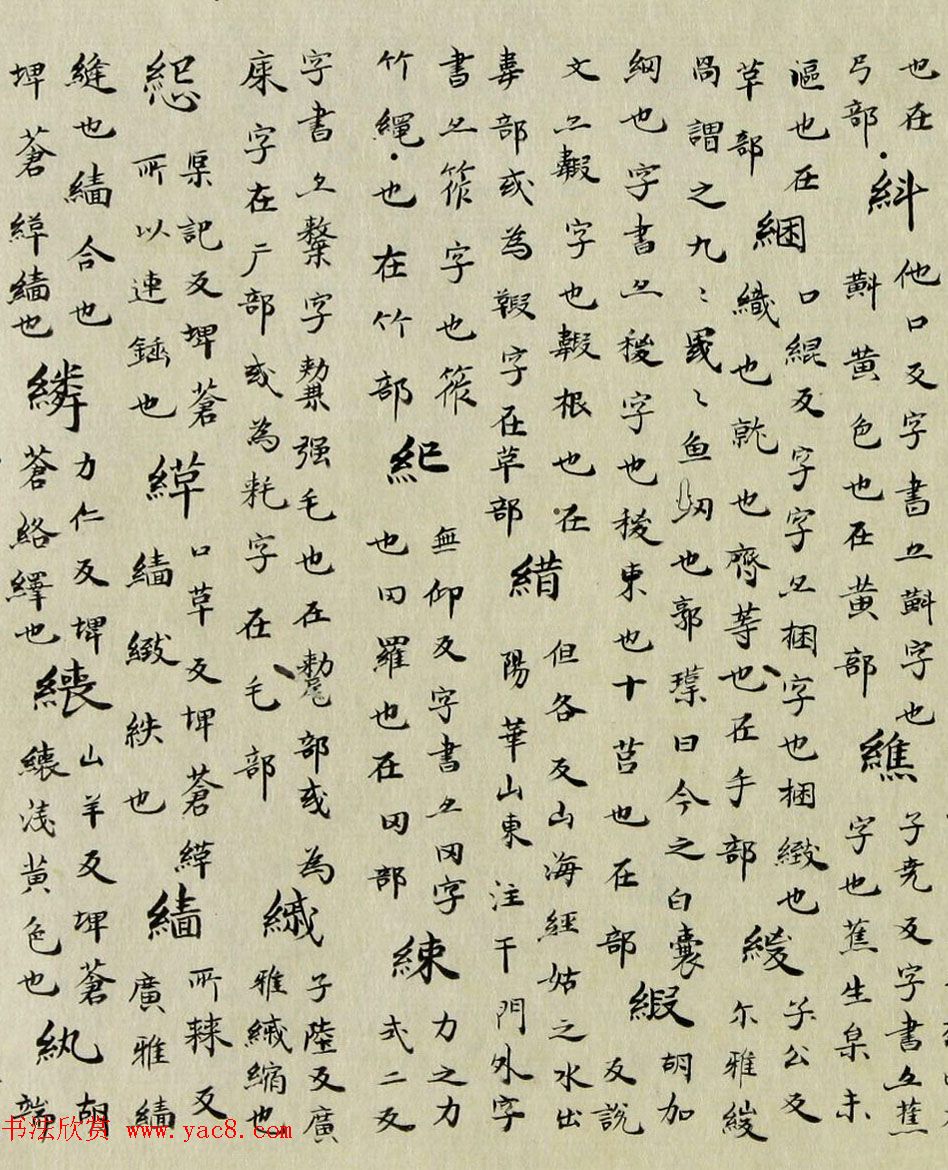 也在
弓部
紏
他口反字書亦黈字也
黈黃色也在黃部
子堯反字書亦蕉
字也蕉生枲未
漚也在
草部
綑
口緄反字字亦捆字也捆緻也
織也也齊等也在手部
緵
子公反
尔雅緵
罟謂之九〻罭〻魚也郭璞曰今之白囊
網也字書亦稯字也稯束也十莒也在部
胡加
反說
文亦字也根也在
韋部或為字在草部
但各反山海經姑之水出
陽華山東注干門外字
書亦筰字也筰
竹繩也在竹部
無仰反字書亦罔字
也罔羅也在罔部
練
力之力
式二反
字書亦氂字氂強毛也在氂部或為
庲字在广部或為耗字在毛部
縬
子陸反廣
雅縬縮也
渠記反埤蒼
所以連錘也
緙
口草反埤蒼緙
繬緻紩也
繬
所棘反
廣雅繬
縫也繬合也
埤蒼緙繬也
繗
力仁反埤
蒼絡繹也
纕
山羊反埤蒼
纕淺黃色也
紈
胡
端
书法欣赏 www.yac8.com